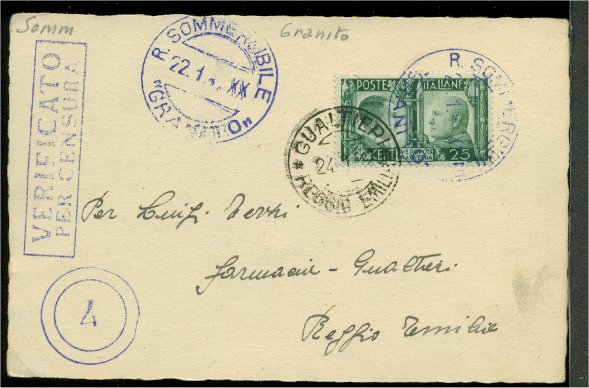 Somm
Granito
R. SOMMERGIBILE
22.1
XX
"GRANITO"
R. SOMMERGIBILE
POSTE ITALIANE
CENT. 25
GUALTIERI
24
* REGGIO EMILIA
VERIFICATO
PER CENSURA
4
Per Luigi
farmacia - Gualtieri
Reggio Emilia